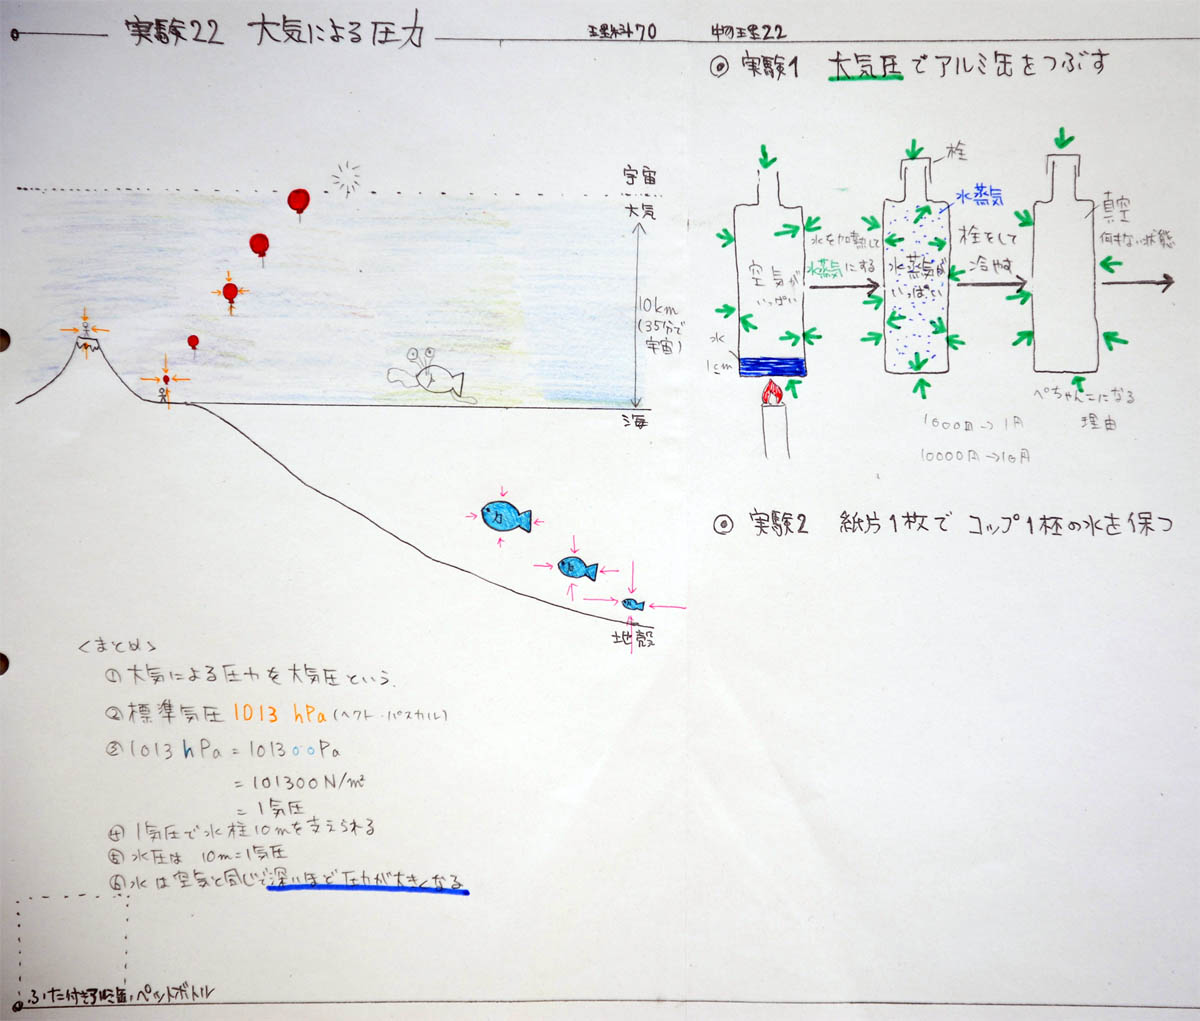 実験22 大気による圧力
理科70
物理22
宇宙
大気
10km
(35分で
宇宙)
海
地殻
<まとめ>
①大気による圧力を大気圧という.
②標準気圧 1013 hPa (ヘクト・パスカル)
③1013 hPa = 101300Pa
= 101300N/m²
= 1気圧
④1気圧で水柱10mを支えられる
⑤水圧は 10m=1気圧
⑥水は空気と同じで深いほど圧力が大きくなる
ふた付きアルミ缶、ペットボトル
◎ 実験1 大気圧でアルミ缶をつぶす
空気が
いっぱい
水
1cm
水を加熱して
水蒸気にする
栓
水蒸気
水蒸気が
いっぱい
栓をして
冷やす
真空
何もない状態
ぺちゃんこになる
理由
1000円→1円
10000円→10円
◎ 実験2 紙片1枚で コップ1杯の水を保つ